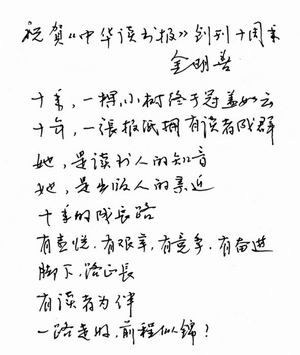 祝贺《中华读书报》创刊十周年
金明善
十年,一棵小树终于冠盖如云
十年,一張报纸拥有读者成群
她,是读书人的知音
她,是出版人的亲近
十年的成长路
有喜悦,有艰辛,有竞争,有奋进
脚下,路正長
有读者为伴
一路走好,前程似锦!